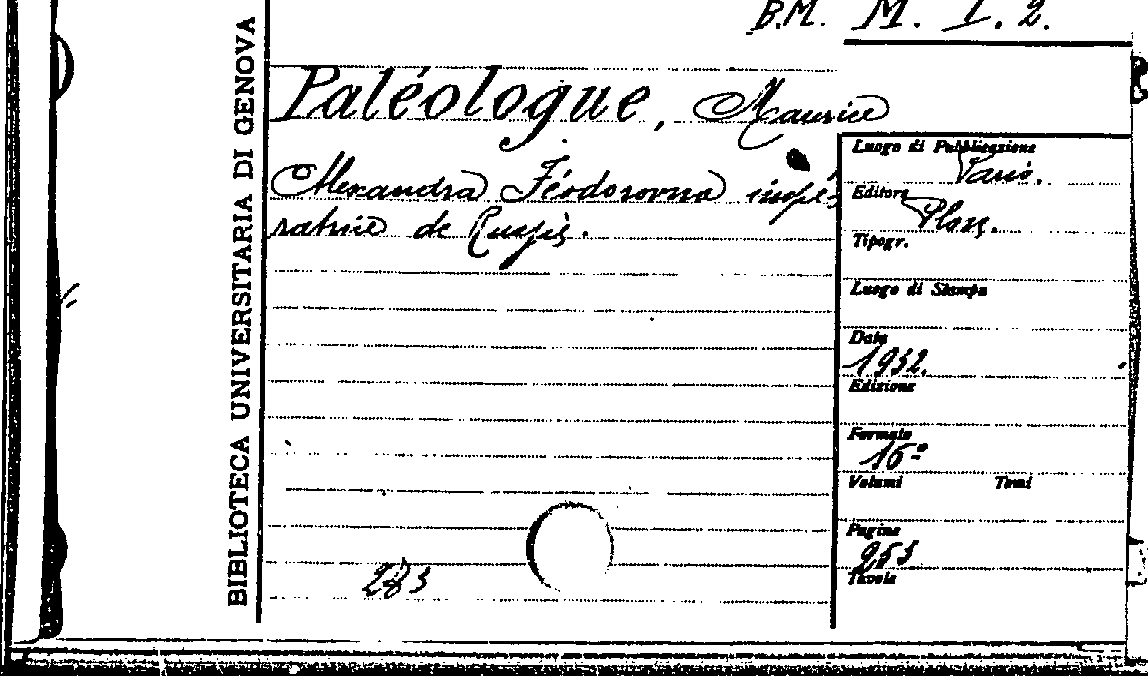 B.M. M. I. 2.
BIBLIOTECA UNIVERSITARIA DI GENOVA
Paléologue, Maurice
Alexandra Féodorovna impé-
ratrice de Russie.
283
Luogo di Pubblicazione
Paris.
Editore
Plon.
Tipogr.
Luogo di Stampa
Data
1932.
Edizione
Formato
16º
Volumi Tomi
Pagine
253
Tavole